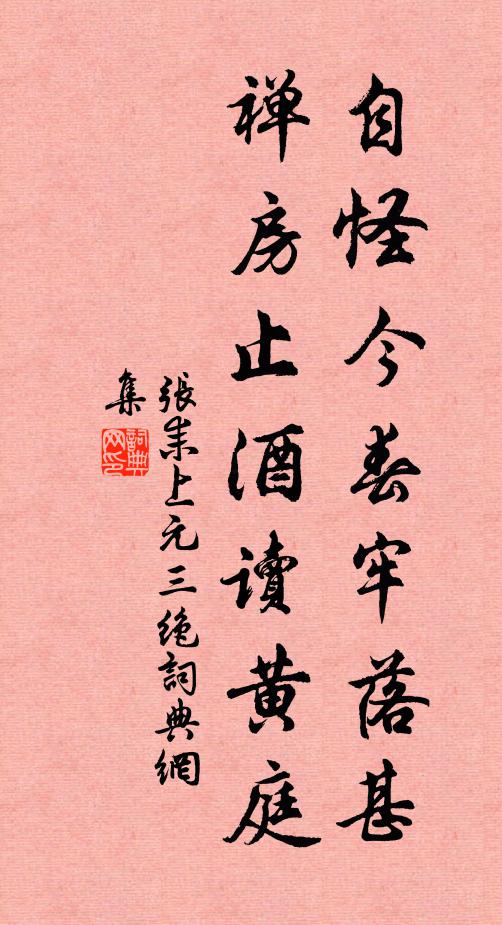 自怪今春牢落甚
禅房止酒读黄庭
張耒上元三绝詞典網
集
詞典
网印